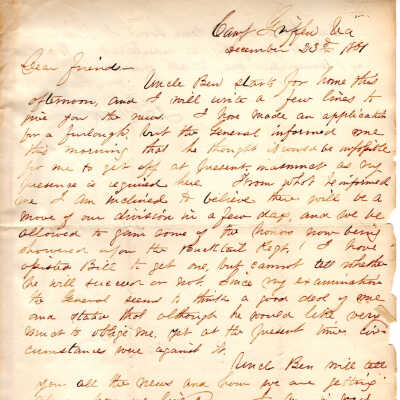 Camp Griffin Va
December 23rd 1861
Dear Friend
Uncle Ben starts for home this
afternoon, and I will write a few lines to
give you the news. I have made an application
for a furlough, but the General informed me
this morning that he thought it would be impossible
for me to get off at present, inasmuch as my
presence is required here. From what he informed
me I am inclined to believe there will be a
move of our division in a few days, and we be
allowed to gain some of the honors now being
showered upon the Bucktail Regt! I have
Bill to get one, but cannot tell whether
he will succeed or not. Since my examination
the General seems to think a good deal of me
and states that although he would like very
much to oblige me, yet at the present time cir-
cumstances were against it.
Uncle Ben will tell
you all the news and how we are getting